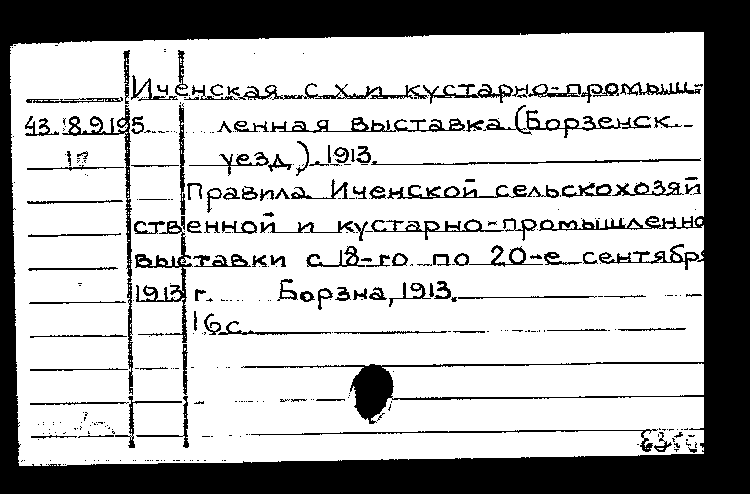 Иченская с.х.и кустарно-промыш-
43.18.9.195. ленная выставка.(Борзенск.
18 уезд.).1913.
Правила Иченской сельскохозяй
ственной и кустарно-промышленно
выставки с 18-го по 20-е сентябр
1913 г. Борзна, 1913.
16с.